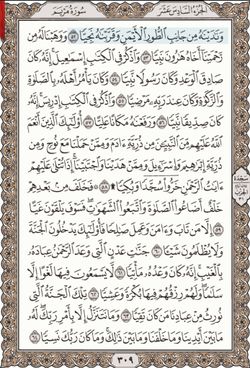 الجُزْءُ السَّادِسَ عَشَرَ سُورَةُ مَرْيَم
وَنَٰدَيْنَٰهُ مِن جَانِبِ ٱلطُّورِ ٱلْأَيْمَنِ وَقَرَّبْنَٰهُ نَجِيًّا ٥٢ وَوَهَبْنَا لَهُۥ مِن
رَّحْمَتِنَآ أَخَاهُ هَٰرُونَ نَبِيًّا ٥٣ وَٱذْكُرْ فِى ٱلْكِتَٰبِ إِسْمَٰعِيلَ إِنَّهُۥ كَانَ
صَادِقَ ٱلْوَعْدِ وَكَانَ رَسُولًا نَّبِيًّا ٥٤ وَكَانَ يَأْمُرُ أَهْلَهُۥ بِٱلصَّلَوٰةِ
وَٱلزَّكَوٰةِ وَكَانَ عِندَ رَبِّهِۦ مَرْضِيًّا ٥٥ وَٱذْكُرْ فِى ٱلْكِتَٰبِ إِدْرِيسَ إِنَّهُۥ
كَانَ صِدِّيقًا نَّبِيًّا ٥٦ وَرَفَعْنَٰهُ مَكَانًا عَلِيًّا ٥٧ أُو۟لَٰٓئِكَ ٱلَّذِينَ أَنْعَمَ
ٱللَّهُ عَلَيْهِم مِّنَ ٱلنَّبِيِّۦنَ مِن ذُرِّيَّةِ ءَادَمَ وَمِمَّنْ حَمَلْنَا مَعَ نُوحٍ وَمِن
ذُرِّيَّةِ إِبْرَٰهِيمَ وَإِسْرَٰٓءِيلَ وَمِمَّنْ هَدَيْنَا وَٱجْتَبَيْنَآ إِذَا تُتْلَىٰ عَلَيْهِمْ
ءَايَٰتُ ٱلرَّحْمَٰنِ خَرُّوا۟ سُجَّدًا وَبُكِيًّا ۩ ٥٨ فَخَلَفَ مِنۢ بَعْدِهِمْ
خَلْفٌ أَضَاعُوا۟ ٱلصَّلَوٰةَ وَٱتَّبَعُوا۟ ٱلشَّهَوَٰتِ فَسَوْفَ يَلْقَوْنَ غَيًّا
٥٩ إِلَّا مَن تَابَ وَءَامَنَ وَعَمِلَ صَٰلِحًا فَأُو۟لَٰٓئِكَ يَدْخُلُونَ ٱلْجَنَّةَ
وَلَا يُظْلَمُونَ شَيْـًٔا ٦٠ جَنَّٰتِ عَدْنٍ ٱلَّتِى وَعَدَ ٱلرَّحْمَٰنُ عِبَادَهُۥ
بِٱلْغَيْبِ إِنَّهُۥ كَانَ وَعْدُهُۥ مَأْتِيًّا ٦١ لَّا يَسْمَعُونَ فِيهَا لَغْوًا إِلَّا
سَلَٰمًا وَلَهُمْ رِزْقُهُمْ فِيهَا بُكْرَةً وَعَشِيًّا ٦٢ تِلْكَ ٱلْجَنَّةُ ٱلَّتِى
نُورِثُ مِنْ عِبَادِنَا مَن كَانَ تَقِيًّا ٦٣ وَمَا نَتَنَزَّلُ إِلَّا بِأَمْرِ رَبِّكَ لَهُۥ
مَا بَيْنَ أَيْدِينَا وَمَا خَلْفَنَا وَمَا بَيْنَ ذَٰلِكَ وَمَا كَانَ رَبُّكَ نَسِيًّا ٦٤
٣٠٩